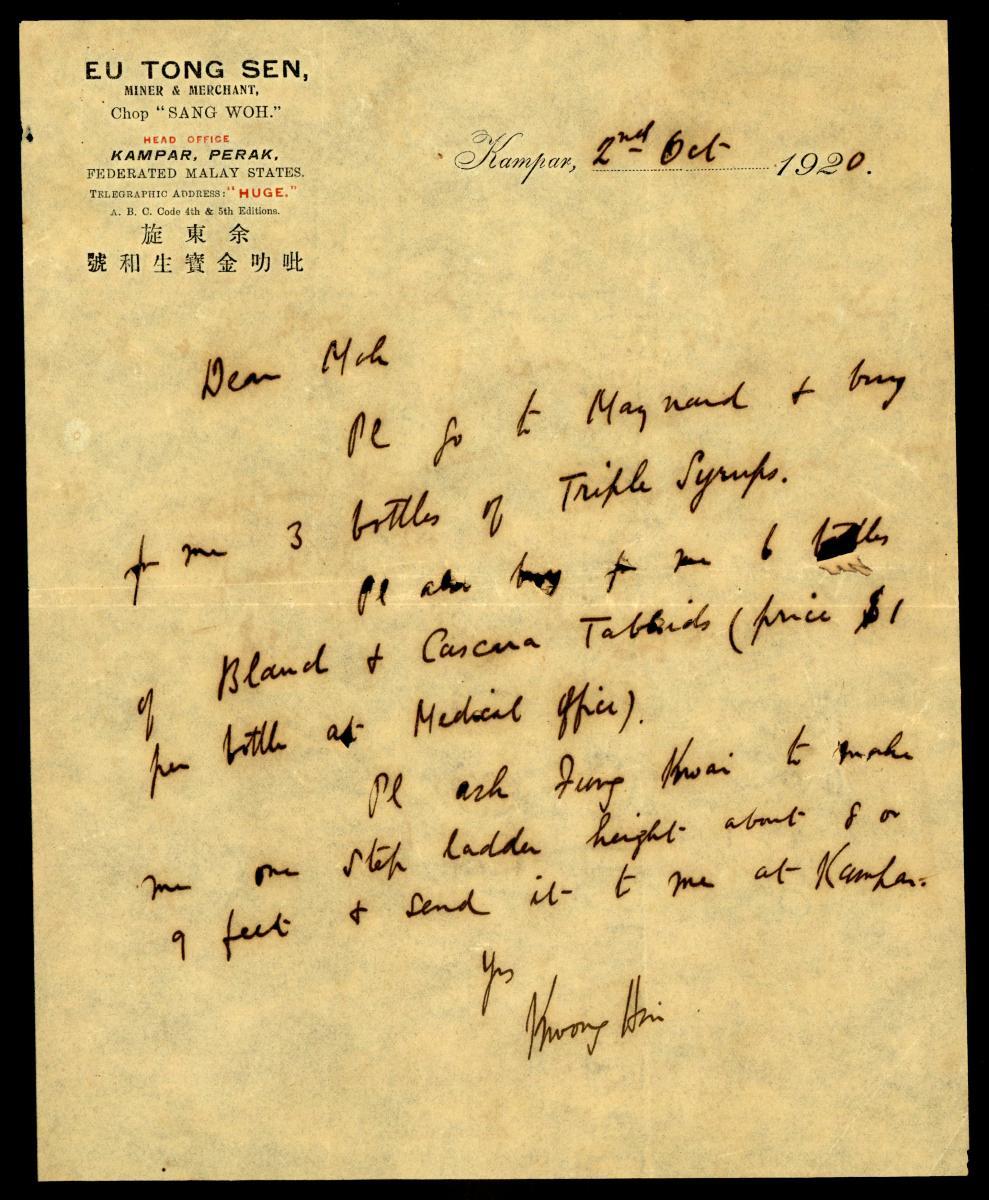 EU TONG SEN,
MINER & MERCHANT,
Chop "SANG WOH."
HEAD OFFICE
KAMPAR, PERAK,
FEDERATED MALAY STATES.
TELEGRAPHIC ADDRESS: "HUGE."
A. B. C. Code 4th & 5th Editions.
旋東余
號和生寶金叻吡
Kampar, 2nd Oct 1920.
Dear Moh
Pl go to Maynard & buy
for me 3 bottles of Triple Syrups.
Pl also buy for me 6 bottles
of Bland & Cascara Tabloids (price $1
per bottle at Medical Office).
Pl ask Fung Kwai to make
me one step ladder height about 8 or
9 feet & send it to me at Kampar.
Yrs
Kwong Hin